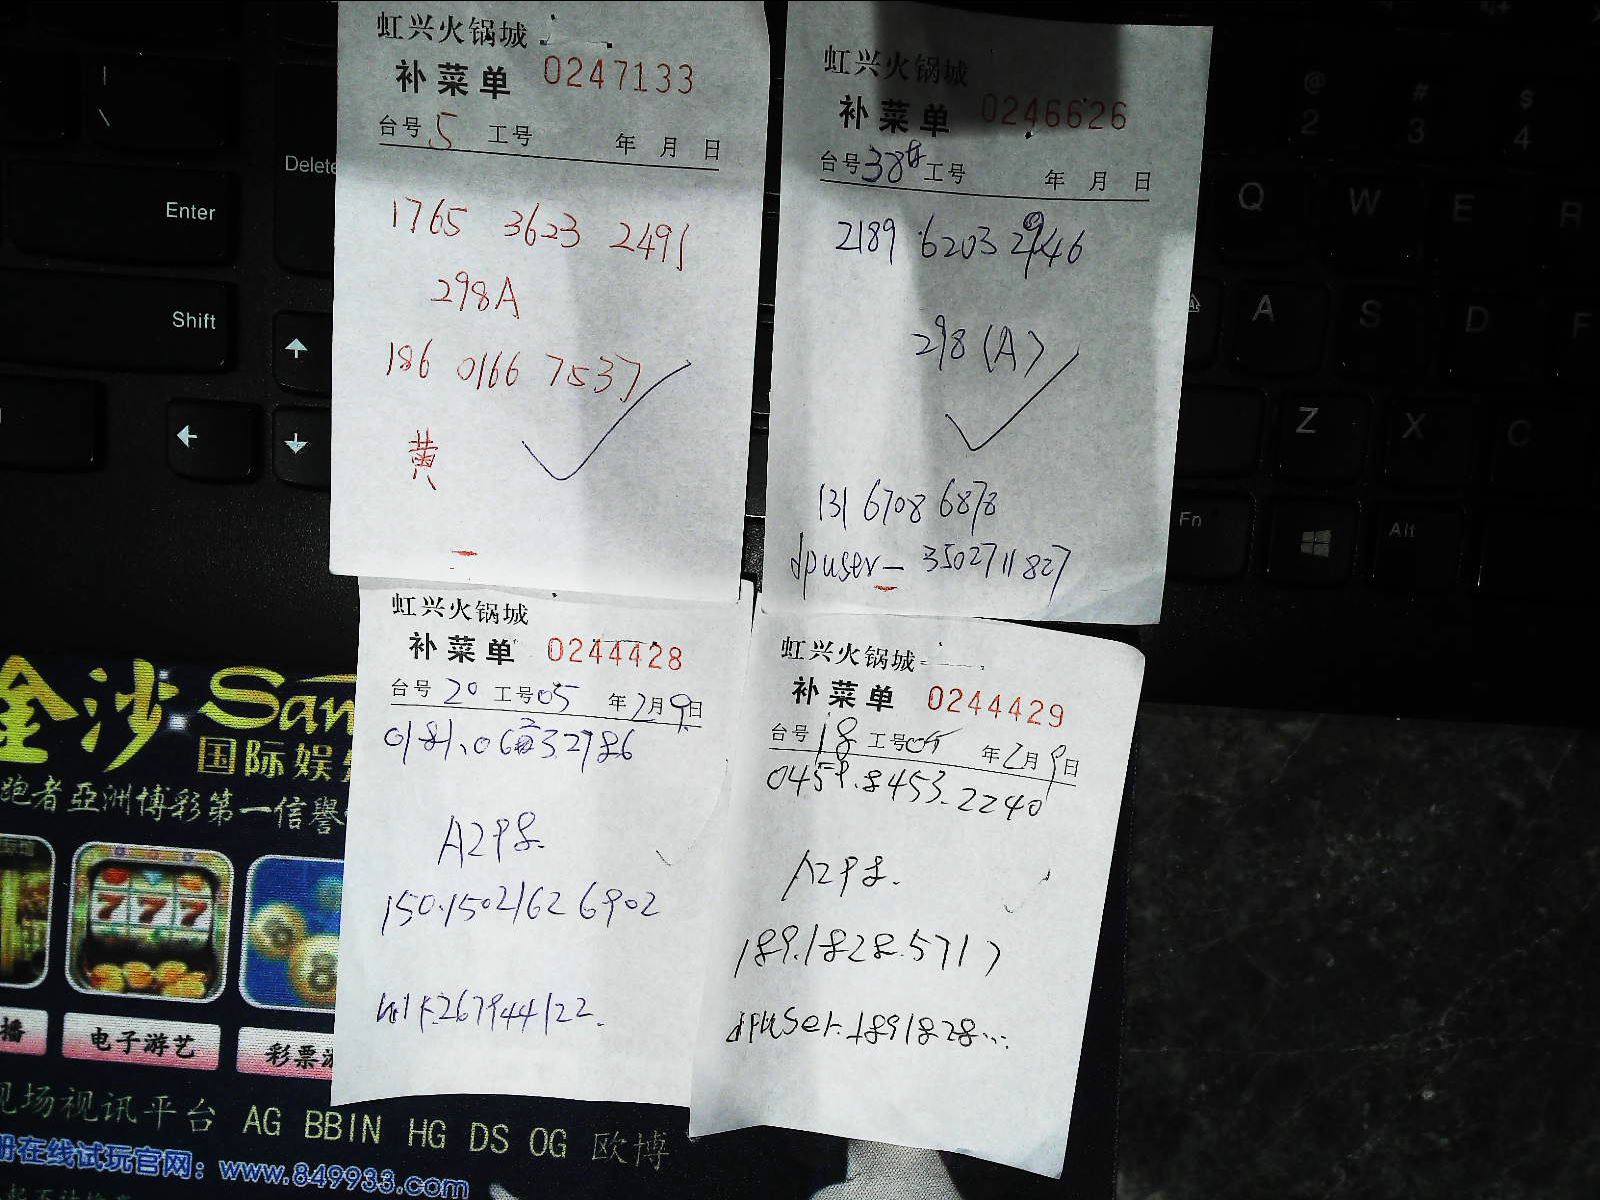 虹兴火锅城
补菜单 0247133
台号 5 工号 年 月 日
1765 3623 2491
298A
186 0166 7537
黄
虹兴火锅城
补菜单 0246626
台号 38 工号 年 月 日
2189 6203 2946
298 (A)
131 6708 6878
dpuser- 3502711827
虹兴火锅城
补菜单 0244428
台号 20 工号 05 年 2月 9日
A298.
150.15021626902
267944122.
虹兴火锅城
补菜单 0244429
台号 18 工号 05 年 2月 9日
0459.8453.2240
A298.
189.1828.5717
dpuser.1891828...
Enter
Delete
Shift
Q
W
E
R
A
S
D
F
Z
X
C
Fn
Alt
@
2
#
3
$
4
|
\
↑
←
↓
金沙 San
国际娱
跑者亞洲博彩第一信譽
7 7 7
8
播
电子游艺
彩票游
现场视讯平台 AG BBIN HG DS OG 欧博
册在线试玩官网：www.849933.com